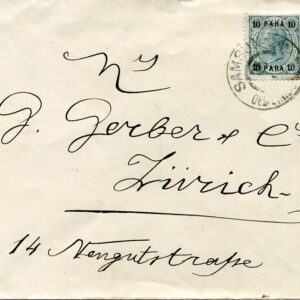 10 PARA 10
10 10
SAMS
OESTERR
Ms
G. Gerber & Co
Zürich
14 Neugutstraße